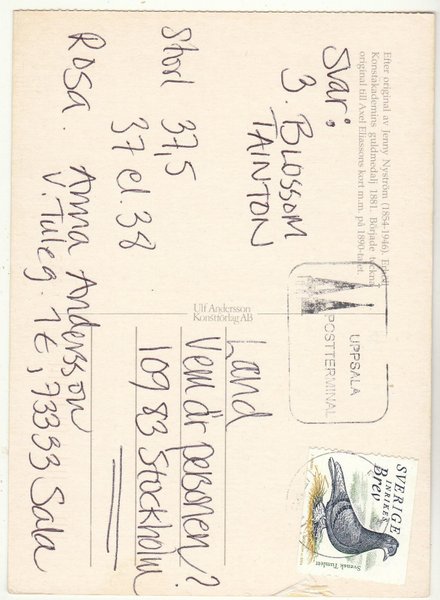 Efter original av Jenny Nyström (1854-1946). Erhöll
Konstakademins guldmedalj 1881. Började teckna
original till Axel Eliassons kort m.m. på 1890-talet.
Svar:
3. BLOSSOM
TAINTON
Storl 37,5
37 el. 38
Rosa.
Anna Andersson
V. Tuleg. 1E, 73333 Sala
Ulf Andersson
Konstförlag AB
UPPSALA
POSTTERMINAL
SVERIGE
INRIKES
Brev
Svensk Tumlett
Land
Vem är personen?
109 83 Stockholm